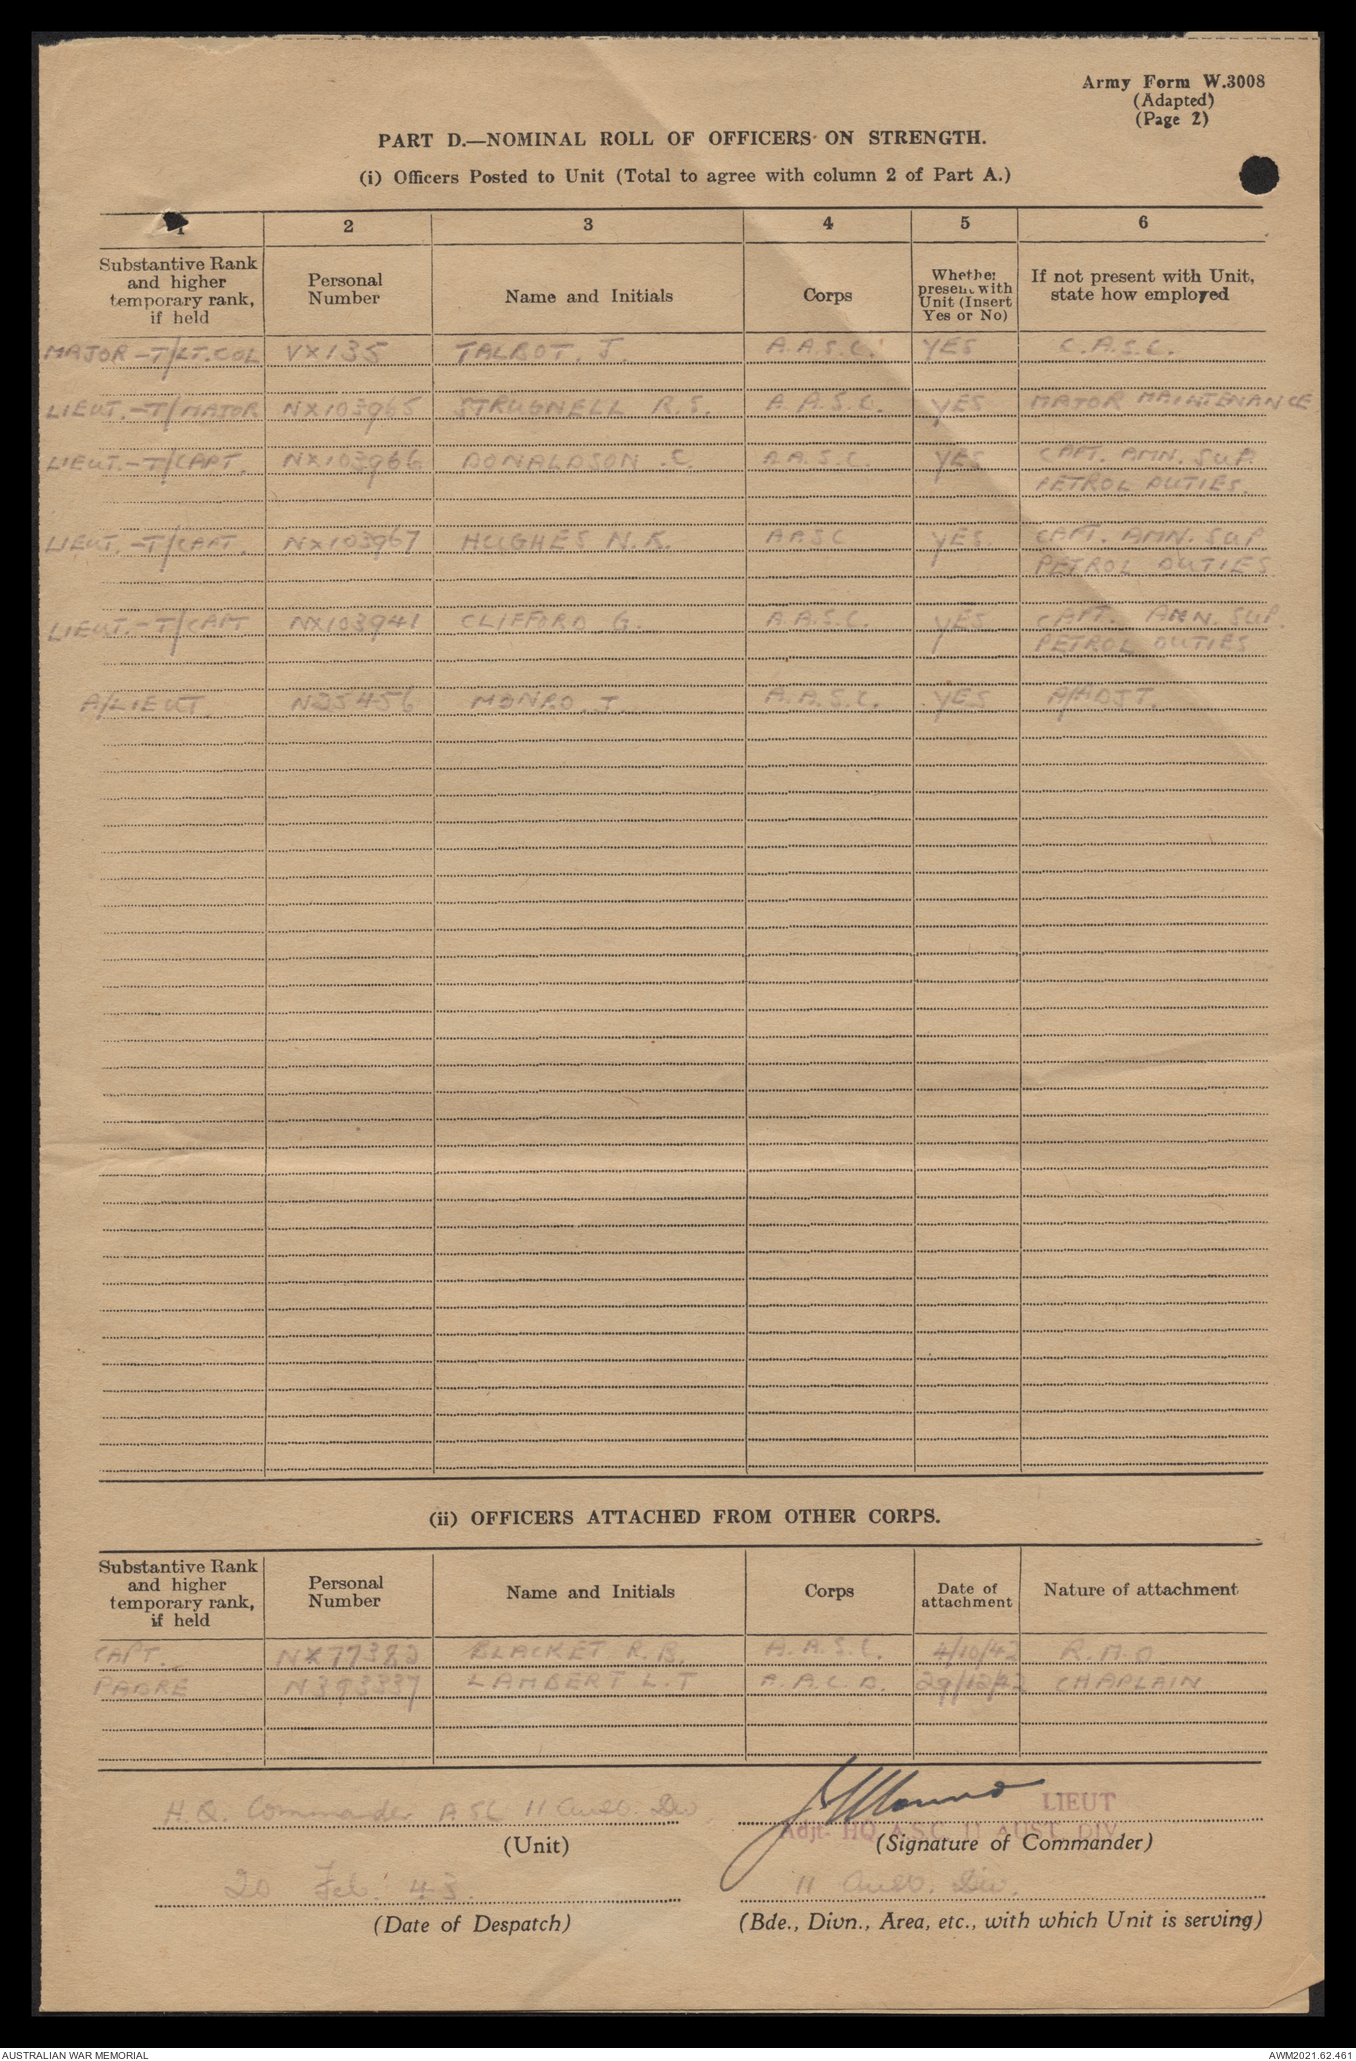 Army Form W.3008
(Adapted)
(Page 2)
PART D.—NOMINAL ROLL OF OFFICERS ON STRENGTH.
(i) Officers Posted to Unit (Total to agree with column 2 of Part A.)
1 2 3 4 5 6
Substantive Rank and higher temporary rank, if held
Personal Number
Name and Initials
Corps
Whether present with Unit (Insert Yes or No)
If not present with Unit, state how employed
MAJOR -T/LT.COL VX135 TALBOT. J. A.A.S.C. YES C.A.S.C.
LIEUT.-T/MAJOR NX103965 STRUGNELL R.S. A.A.S.C. YES MAJOR MAINTENANCE
LIEUT.-T/CAPT. NX103966 DONALDSON .C. A.A.S.C. YES CAPT. AMN. SUP.
PETROL DUTIES.
LIEUT.-T/CAPT. NX103967 HUGHES N.K. AASC YES. CAPT. AMN. SUP
PETROL DUTIES
LIEUT.-T/CAPT NX103941 CLIFFORD G. A.A.S.C. YES CAPT. AMN. SUP.
PETROL DUTIES
A/LIEUT. N35456 MONRO J. A.A.S.C. YES A/ADJT.
(ii) OFFICERS ATTACHED FROM OTHER CORPS.
Substantive Rank and higher temporary rank, if held
Personal Number
Name and Initials
Corps
Date of attachment
Nature of attachment
CAPT. NX77382 BLACKET R.B. A.A.S.C. 4/10/42 R.M.O.
PADRE N393337 LAMBERT L.T A.A.C.D. 29/12/42 CHAPLAIN
H.Q. Commander ASC 11 Aust. Div
LIEUT
Adjt- HQ A.S.C. 11 AUST. DIV
(Unit)
(Signature of Commander)
20 Feb. 43.
11 Aust. Div.
(Date of Despatch)
(Bde., Divn., Area, etc., with which Unit is serving)
AUSTRALIAN WAR MEMORIAL
AWM2021.62.461